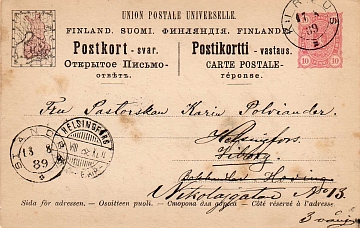 UNION POSTALE UNIVERSELLE.
FINLAND. SUOMI. ФИНЛЯНДІЯ. FINLANDE.
Postkort - svar. Postikortti - vastaus.
Открытое Письмо- CARTE POSTALE-
отвѣтъ. réponse.
10 10
13 8
89
Fru Pastorskan Karin Polviander.
Helsingfors.
HELSINGFORS
Viborg.
13 8
89
Nikolaigatan No 13.
Sida för adressen. - Osoitteen puoli. - Сторона для адреса. - Côté réservé à l'adresse.
3 våning